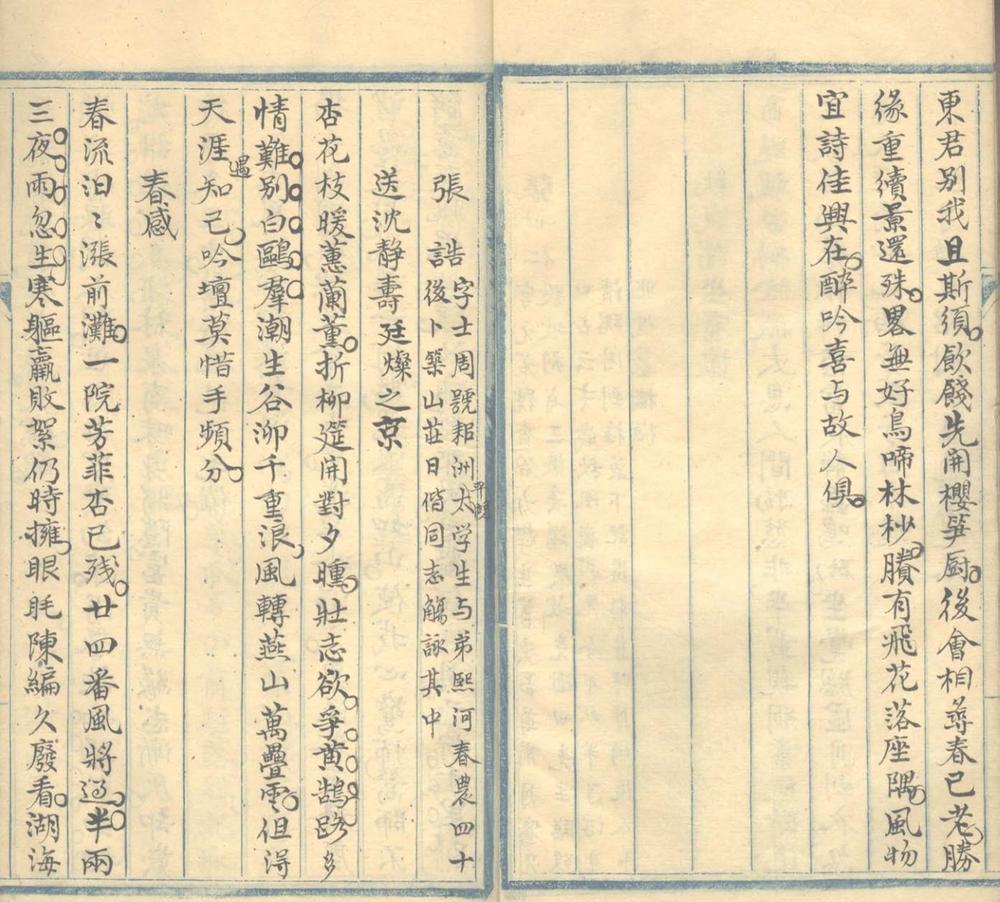 東君別我且斯須飲餞先開櫻笋厨後會相尋春已老勝
緣重續景還殊畧無好鳥啼林杪賸有飛花落座隅風物
宜詩佳興在醉吟喜与故人俱
張誥字士周號耜洲太学生与弟熙河春農四十
後築山莊日偕同志觴詠其中
送沈静壽廷燦之京
杏花枝暖蕙蘭薰折柳筵開對夕曛壯志欲爭黄鵠路多
情難別白鷗羣潮生谷泖千重浪風轉燕山萬疊雲但得
天涯知己遇吟壇莫惜手頻分
春感
春流汩〻漲前灘一院芳菲杏已残廿四番風將過半兩
三夜雨忽生寒軀羸敗絮仍時擁眼眊陳編久廢看湖海